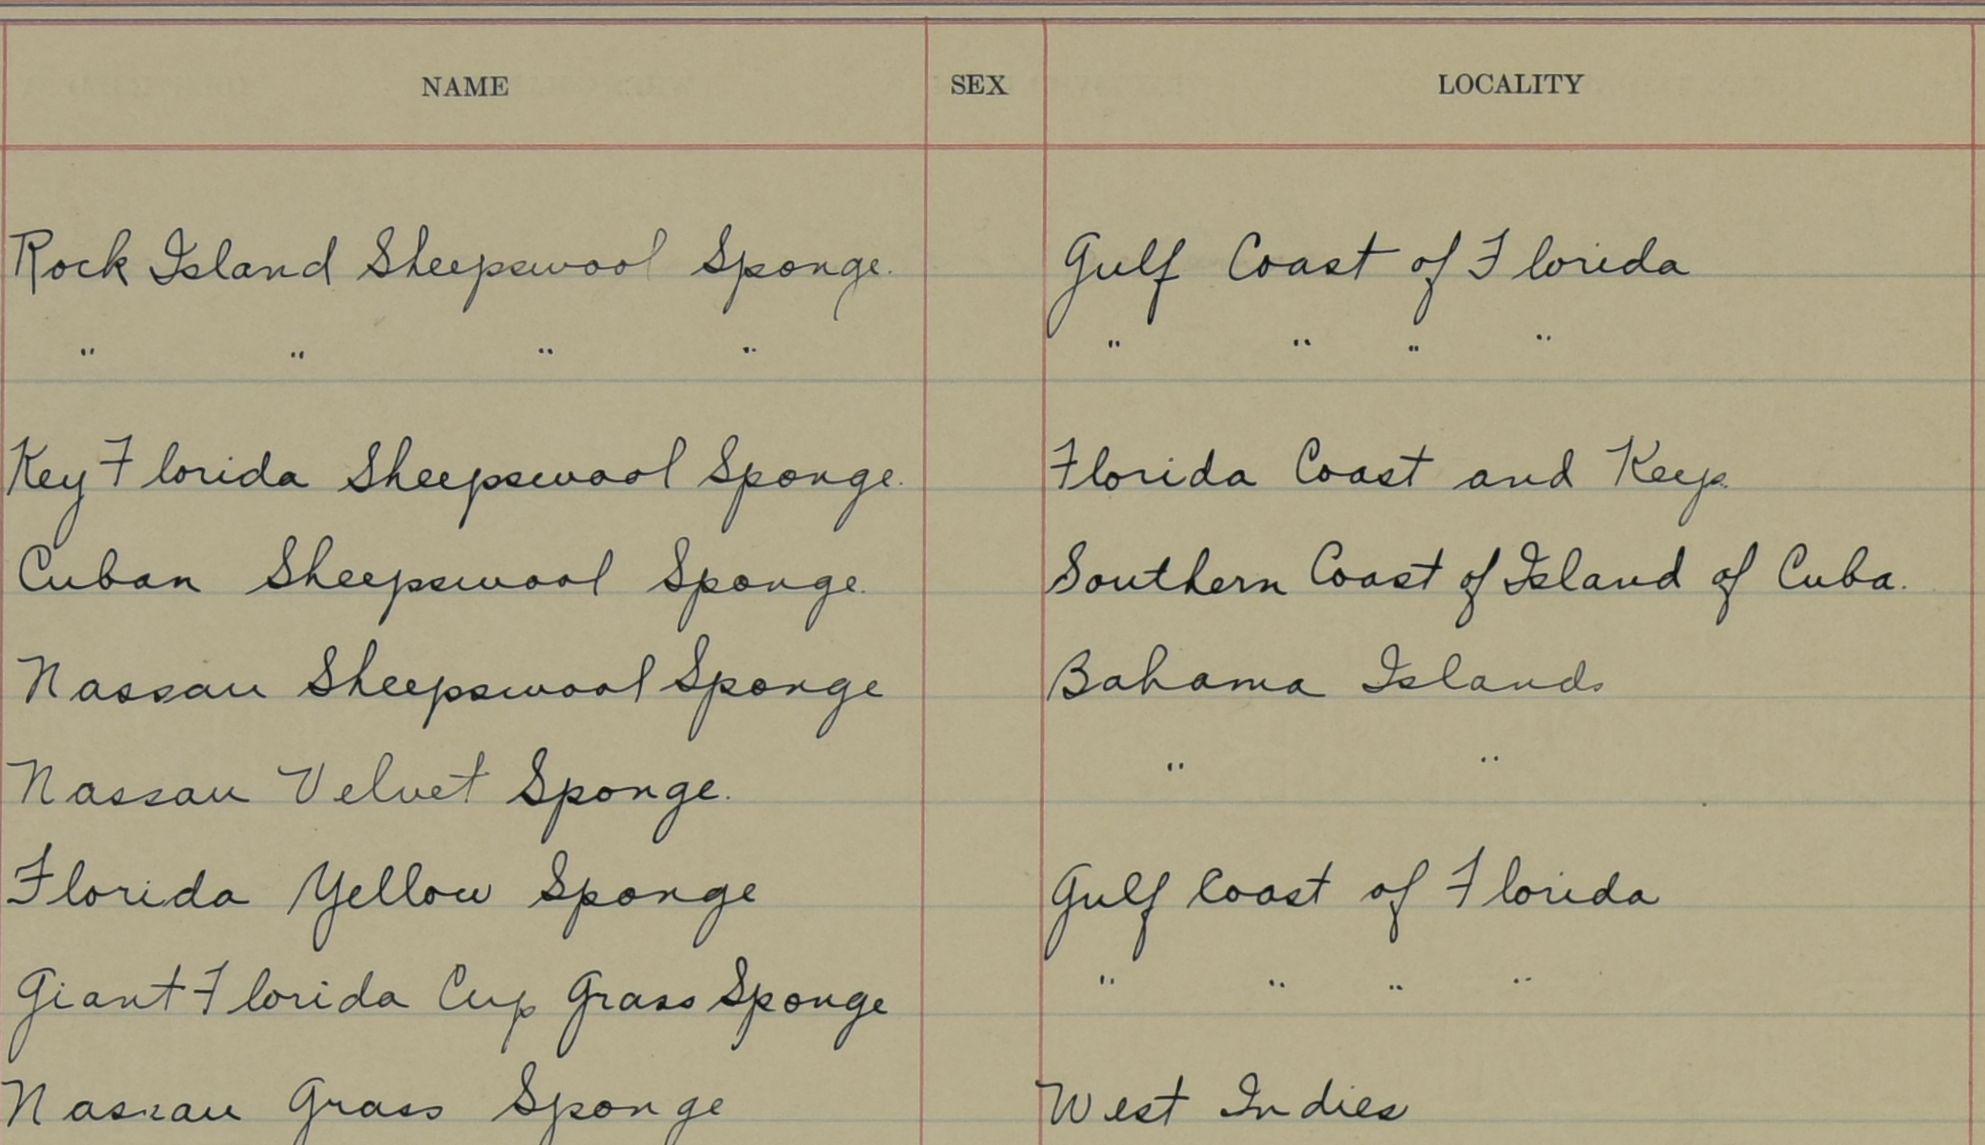 NAME SEX LOCALITY
Rock Island Sheepswool Sponge. Gulf Coast of Florida
" " " " " " " "
Key Florida Sheepswool Sponge. Florida Coast and Keys.
Cuban Sheepswool Sponge. Southern Coast of Island of Cuba.
Nassau Sheepswool Sponge Bahama Islands
Nassau Velvet Sponge. " "
Florida Yellow Sponge Gulf Coast of Florida
Giant Florida Cup Grass Sponge " " " "
Nassau Grass Sponge West Indies